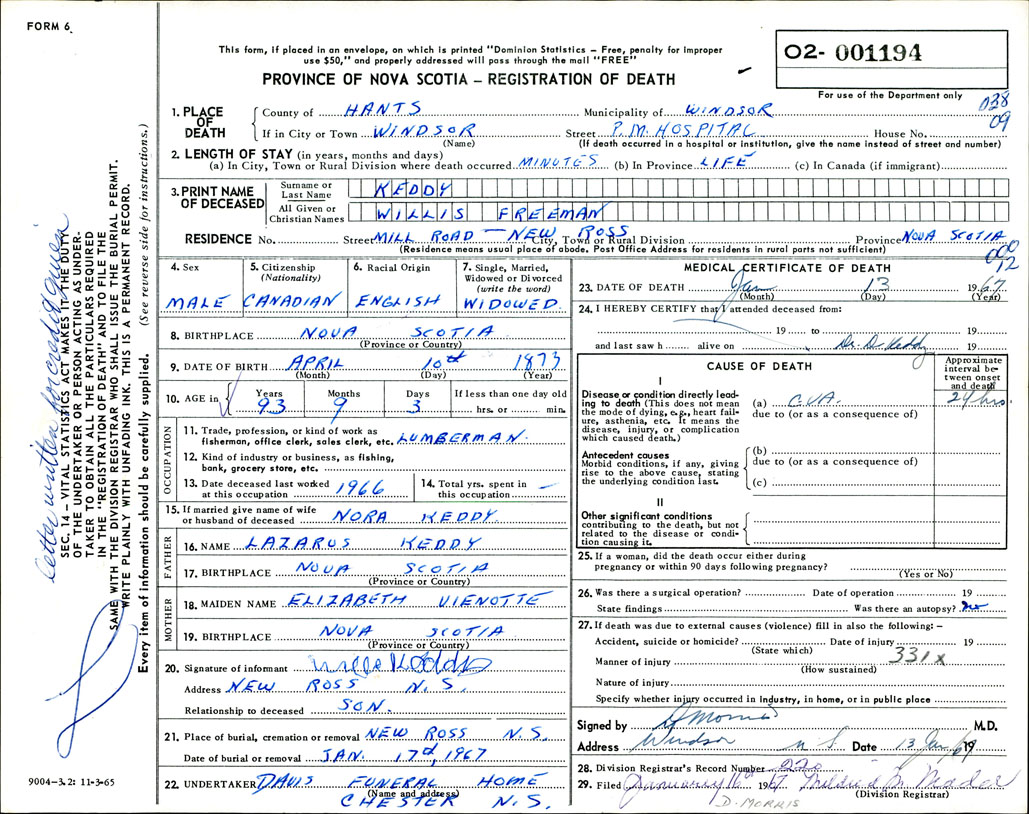 FORM 6
This form, if placed in an envelope, on which is printed "Dominion Statistics – Free, penalty for improper
use $50," and properly addressed will pass through the mail "FREE"
PROVINCE OF NOVA SCOTIA – REGISTRATION OF DEATH
02- 001194
For use of the Department only
038
09
1. PLACE OF DEATH
County of HANTS Municipality of WINDSOR
If in City or Town WINDSOR Street P.M. HOSPITAL House No.
(Name) (If death occurred in a hospital or institution, give the name instead of street and number)
2. LENGTH OF STAY (in years, months and days)
(a) In City, Town or Rural Division where death occurred MINUTES (b) In Province LIFE (c) In Canada (if immigrant)
3. PRINT NAME OF DECEASED
Surname or Last Name KEDDY
All Given or Christian Names WILLIS FREEMAN
RESIDENCE No. Street MILL ROAD – NEW ROSS City, Town or Rural Division Province NOVA SCOTIA
(Residence means usual place of abode. Post Office Address for residents in rural parts not sufficient)
000
12
4. Sex
MALE
5. Citizenship (Nationality)
CANADIAN
6. Racial Origin
ENGLISH
7. Single, Married, Widowed or Divorced (write the word)
WIDOWED
8. BIRTHPLACE NOVA SCOTIA
(Province or Country)
9. DATE OF BIRTH APRIL 10th 1873
(Month) (Day) (Year)
10. AGE in Years Months Days If less than one day old
93 9 3 hrs. or min.
OCCUPATION
11. Trade, profession, or kind of work as
fisherman, office clerk, sales clerk, etc. LUMBERMAN
12. Kind of industry or business, as fishing,
bank, grocery store, etc.
13. Date deceased last worked at this occupation 1966
14. Total yrs. spent in this occupation –
15. If married give name of wife
or husband of deceased NORA KEDDY
FATHER
16. NAME LAZARUS KEDDY
17. BIRTHPLACE NOVA SCOTIA
(Province or Country)
MOTHER
18. MAIDEN NAME ELIZABETH VIENOTTE
19. BIRTHPLACE NOVA SCOTIA
(Province or Country)
20. Signature of informant
Address NEW ROSS N.S.
Relationship to deceased SON.
21. Place of burial, cremation or removal NEW ROSS N.S.
Date of burial or removal JAN. 17th, 1967
22. UNDERTAKER DAVIS FUNERAL HOME
(Name and address)
CHESTER N.S.
MEDICAL CERTIFICATE OF DEATH
23. DATE OF DEATH Jan 13 1967
(Month) (Day) (Year)
24. I HEREBY CERTIFY that I attended deceased from:
19 to 19
and last saw h alive on Dr. D. Keddy 19
CAUSE OF DEATH
Approximate interval between onset and death
I
Disease or condition directly leading to death (This does not mean the mode of dying, e.g., heart failure, asthenia, etc. It means the disease, injury, or complication which caused death.)
(a) C.V.A. 24 hrs.
due to (or as a consequence of)
Antecedent causes
Morbid conditions, if any, giving rise to the above cause, stating the underlying condition last.
(b)
due to (or as a consequence of)
(c)
II
Other significant conditions
contributing to the death, but not related to the disease or condition causing it.
25. If a woman, did the death occur either during
pregnancy or within 90 days following pregnancy?
(Yes or No)
26. Was there a surgical operation? Date of operation 19
State findings Was there an autopsy? no
27. If death was due to external causes (violence) fill in also the following: –
Accident, suicide or homicide? Date of injury 19
(State which)
331x
Manner of injury
(How sustained)
Nature of injury
Specify whether injury occurred in industry, in home, or in public place
Signed by D Morris M.D.
Address Windsor N.S. Date 13 Jan 1967
28. Division Registrar's Record Number 220
29. Filed January 1967 Mildred M. Mader
(Division Registrar)
D. MORRIS
9004-3.2: 11-3-65
SEC. 14 – VITAL STATISTICS ACT MAKES IT THE DUTY
OF THE UNDERTAKER OR PERSON ACTING AS UNDER-
TAKER TO OBTAIN ALL THE PARTICULARS REQUIRED
IN THE "REGISTRATION OF DEATH" AND TO FILE THE
SAME WITH THE DIVISION REGISTRAR WHO SHALL ISSUE THE BURIAL PERMIT.
WRITE PLAINLY WITH UNFADING INK. THIS IS A PERMANENT RECORD.
Every item of information should be carefully supplied. (See reverse side for instructions.)
Letter written for credit given